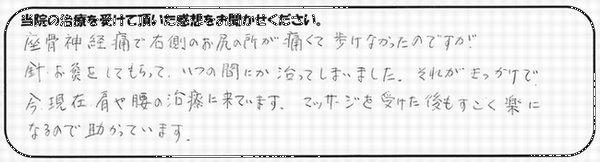 当院の治療を受けて頂いた感想をお聞かせください。
座骨神経痛で右側のお尻の所が痛くて歩けなかったのですが
針・お灸をしてもらって、いつの間にか治ってしまいました。それがきっかけで
今現在、肩や腰の治療に来ています。マッサージを受けた後もすごく楽に
なるので助かっています。